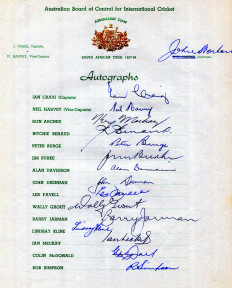 Australian Board of Control for International Cricket
AUSTRALIAN TEAM
I. CRAIG, Captain
SOUTH AFRICAN TOUR 1957-58
N. HARVEY, Vice-Captain
Autographs
IAN CRAIG (Captain) Ian Craig
NEIL HARVEY (Vice-Captain) Neil Harvey
RON ARCHER
RICHIE BENAUD R Benaud
PETER BURGE Peter Burge
JIM BURKE Jim Burke
ALAN DAVIDSON Alan Davidson
JOHN DRENNAN John Drennan
LES FAVELL Les Favell
WALLY GROUT Wally Grout
BARRY JARMAN Barry Jarman
LINDSAY KLINE Lindsay Kline
IAN MECKIFF Ian Meckiff
COLIN McDONALD
BOB SIMPSON R Simpson